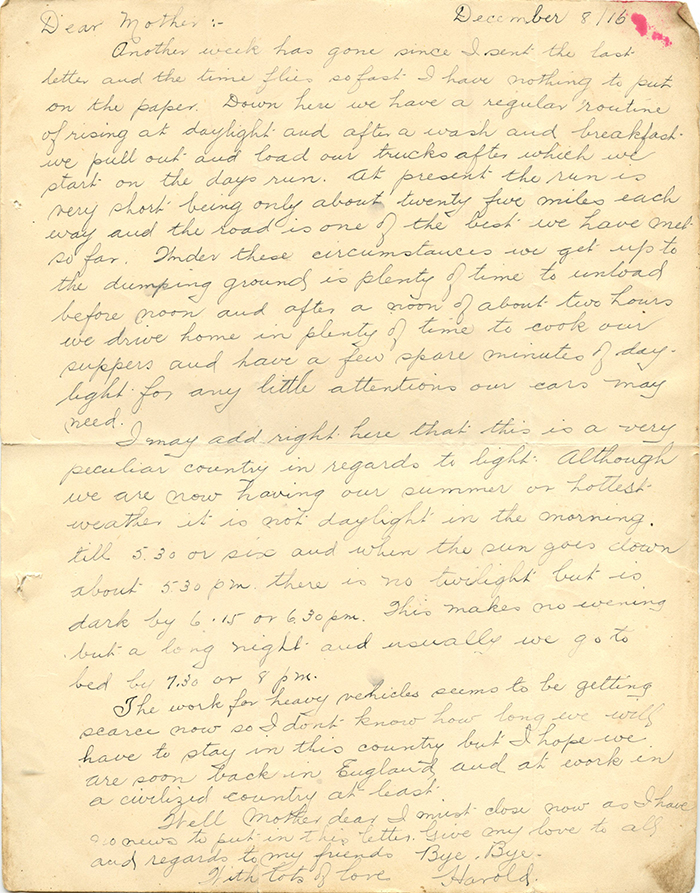 December 8/16
Dear Mother :-
Another week has gone since I sent the last
letter and the time flies so fast I have nothing to put
on the paper. Down here we have a regular routine
of rising at daylight and after a wash and breakfast
we pull out and load our trucks after which we
start on the days run. At present the run is
very short being only about twenty five miles each
way and the road is one of the best we have met
so far. Under these circumstances we get up to
the dumping ground is plenty of time to unload
before noon and after a noon of about two hours
we drive home in plenty of time to cook our
suppers and have a few spare minutes of day-
light for any little attentions our cars may
need.
I may add right here that this is a very
peculiar country in regards to light. Although
we are now having our summer or hottest
weather it is not daylight in the morning.
till 5.30 or six and when the sun goes down
about 5.30 pm. there is no twilight but is
dark by 6.15 or 6.30 pm. This makes no evening
but a long night and usually we go to
bed by 7.30 or 8 pm.
The work for heavy vehicles seems to be getting
scarce now so I dont know how long we will
have to stay in this country but I hope we
are soon back in England and at work in
a civilized country at least.
Well Mother dear I must close now as I have
no news to put in this letter. Give my love to all
and regards to my friends Bye. Bye.
With lots of love Harold.